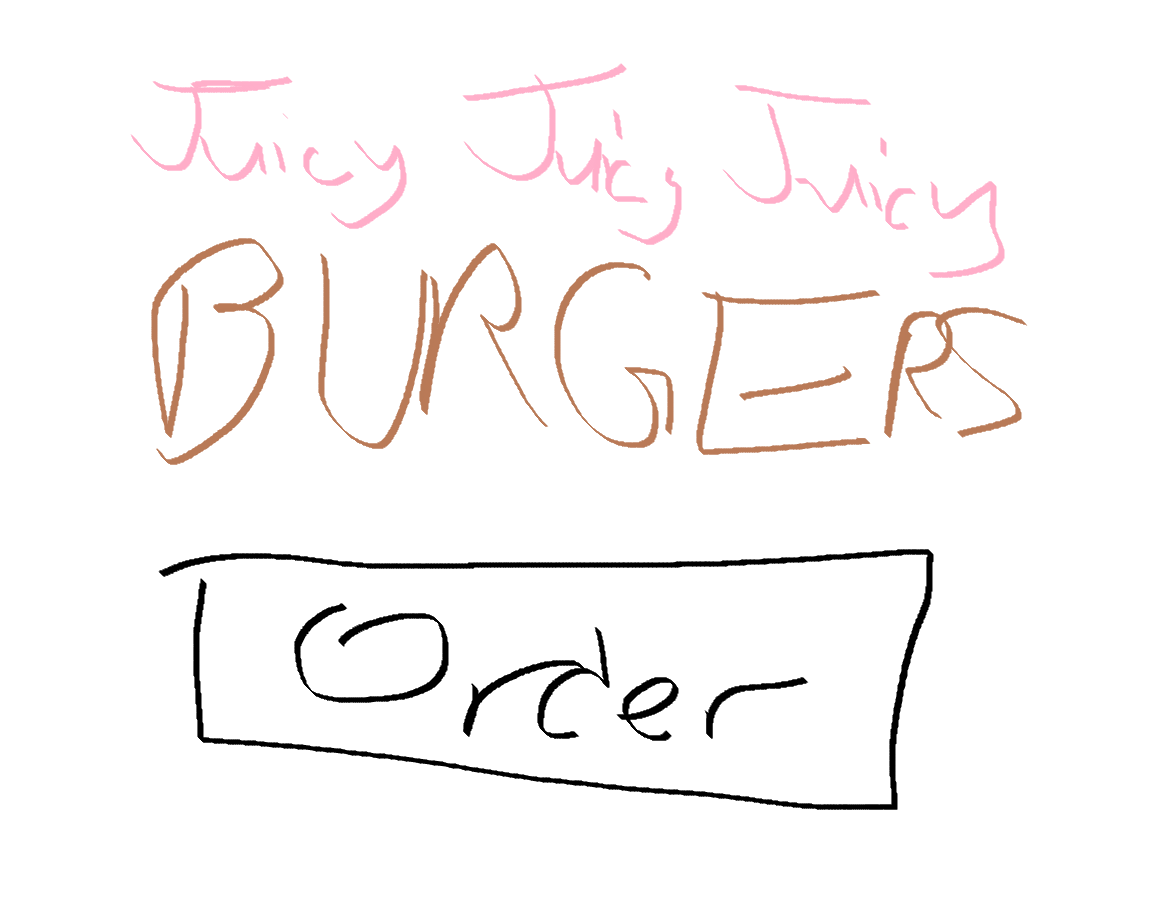 Juicy Juicy Juicy
BURGERS
Order